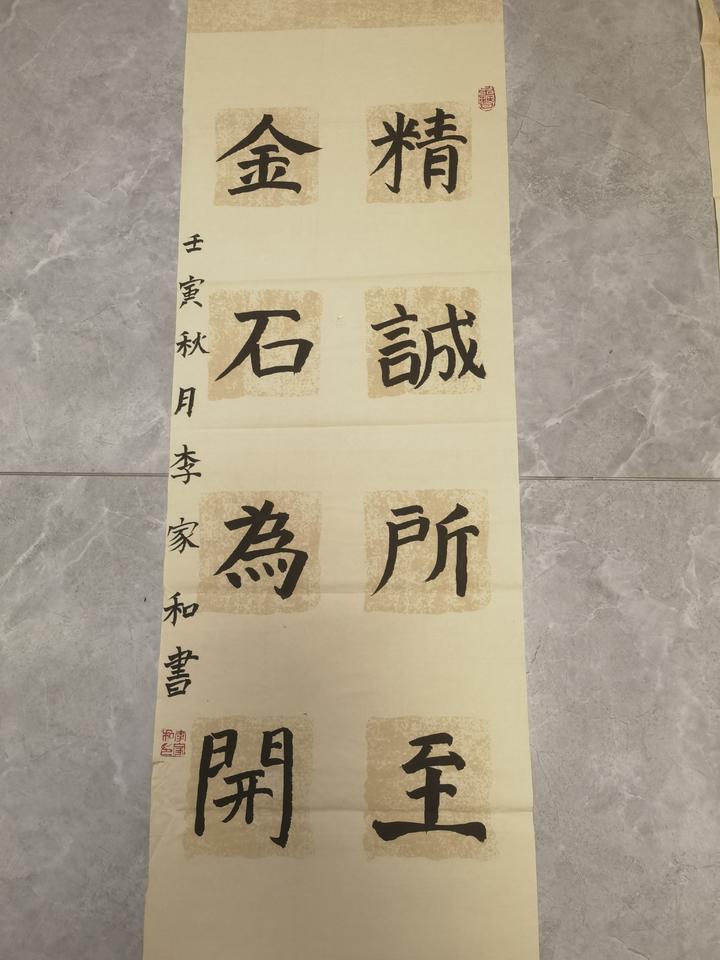 精誠所至
金石為開
壬寅秋月李家和書
李家和印